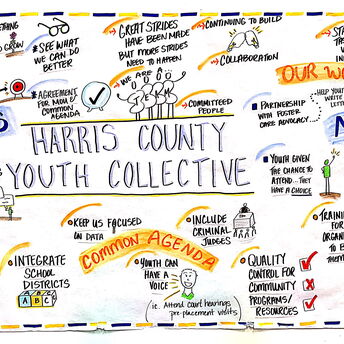 THING
GROW
* SEE WHAT
WE CAN DO
BETTER
→ GREAT STRIDES
HAVE BEEN MADE
BUT MORE STRIDES
NEED TO HAPPEN
→ CONTINUING TO BUILD
→ COLLABORATION
OUR WO
→ AGREEMENT
FOR MOU &
COMMON
AGENDA
WE ARE A
TEAM
→ COMMITTED
PEOPLE
PARTNERSHIP
WITH FOSTER-
CARE ADVOCACY
HELP YOU
WRITE
LETT
S
HARRIS COUNTY
YOUTH COLLECTIVE
YOUTH GIVEN
THE CHANCE TO
ATTEND – THEY
HAVE A CHOICE
KEEP US FOCUSED
ON DATA
INCLUDE
CRIMINAL
JUDGES
TRAININ
FOR
ORGANI
TO B
COMMON AGENDA
INTEGRATE
SCHOOL
DISTRICTS
A B C
YOUTH CAN
HAVE A
VOICE
(ie. Attend court hearings,
pre-placement visits)
QUALITY
CONTROL FOR
COMMUNITY
PROGRAMS/
RESOURCES